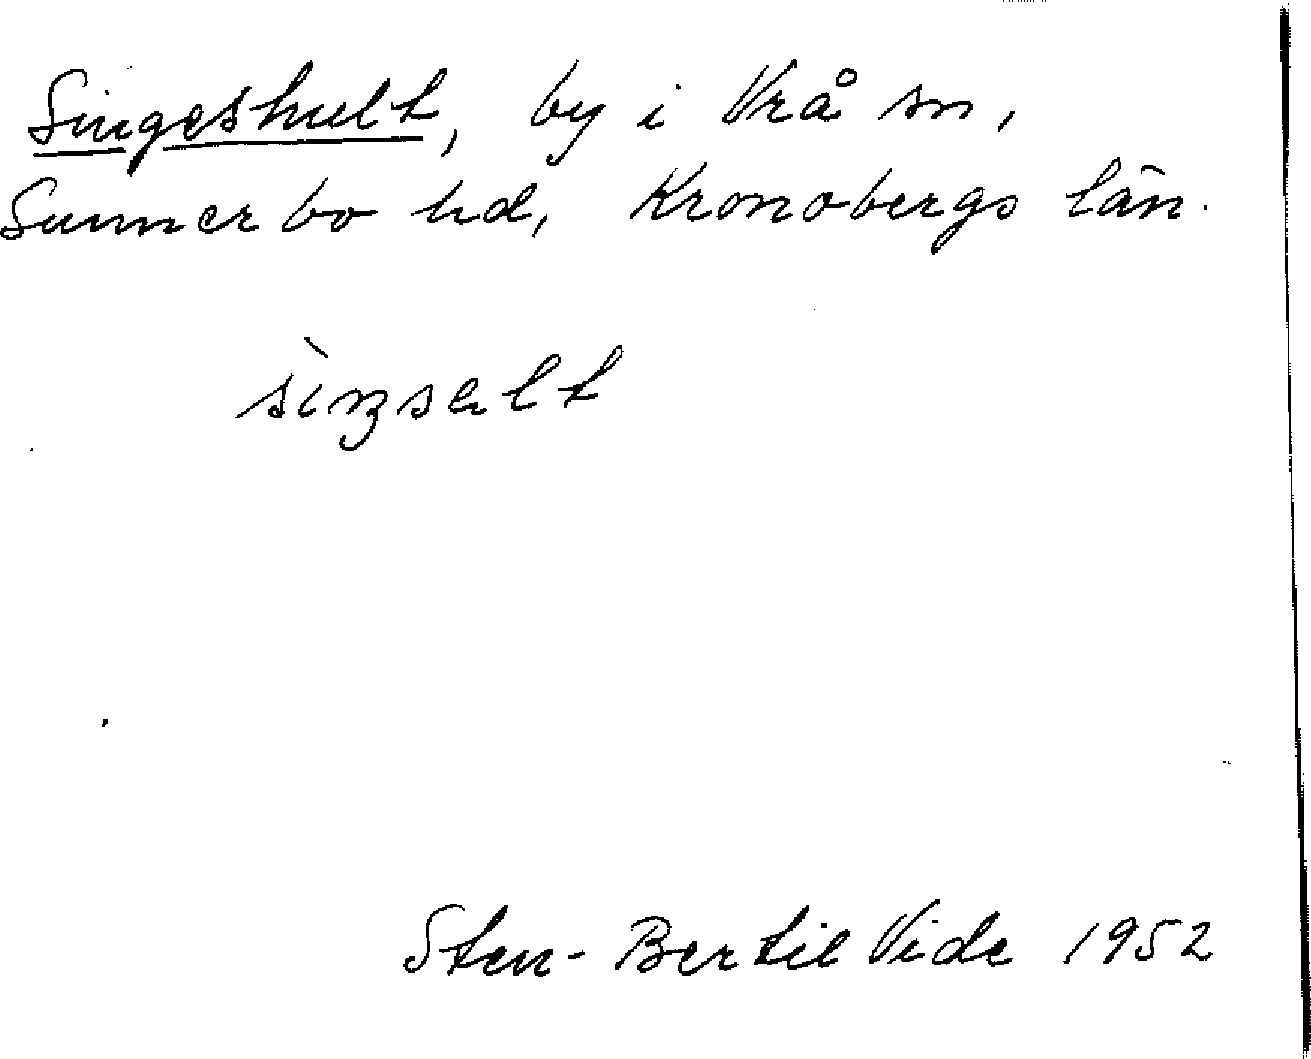 Singeshult, by i Vrå sn,
Sunnerbo hd, Kronobergs län.
Sten-Bertil Vide 1952